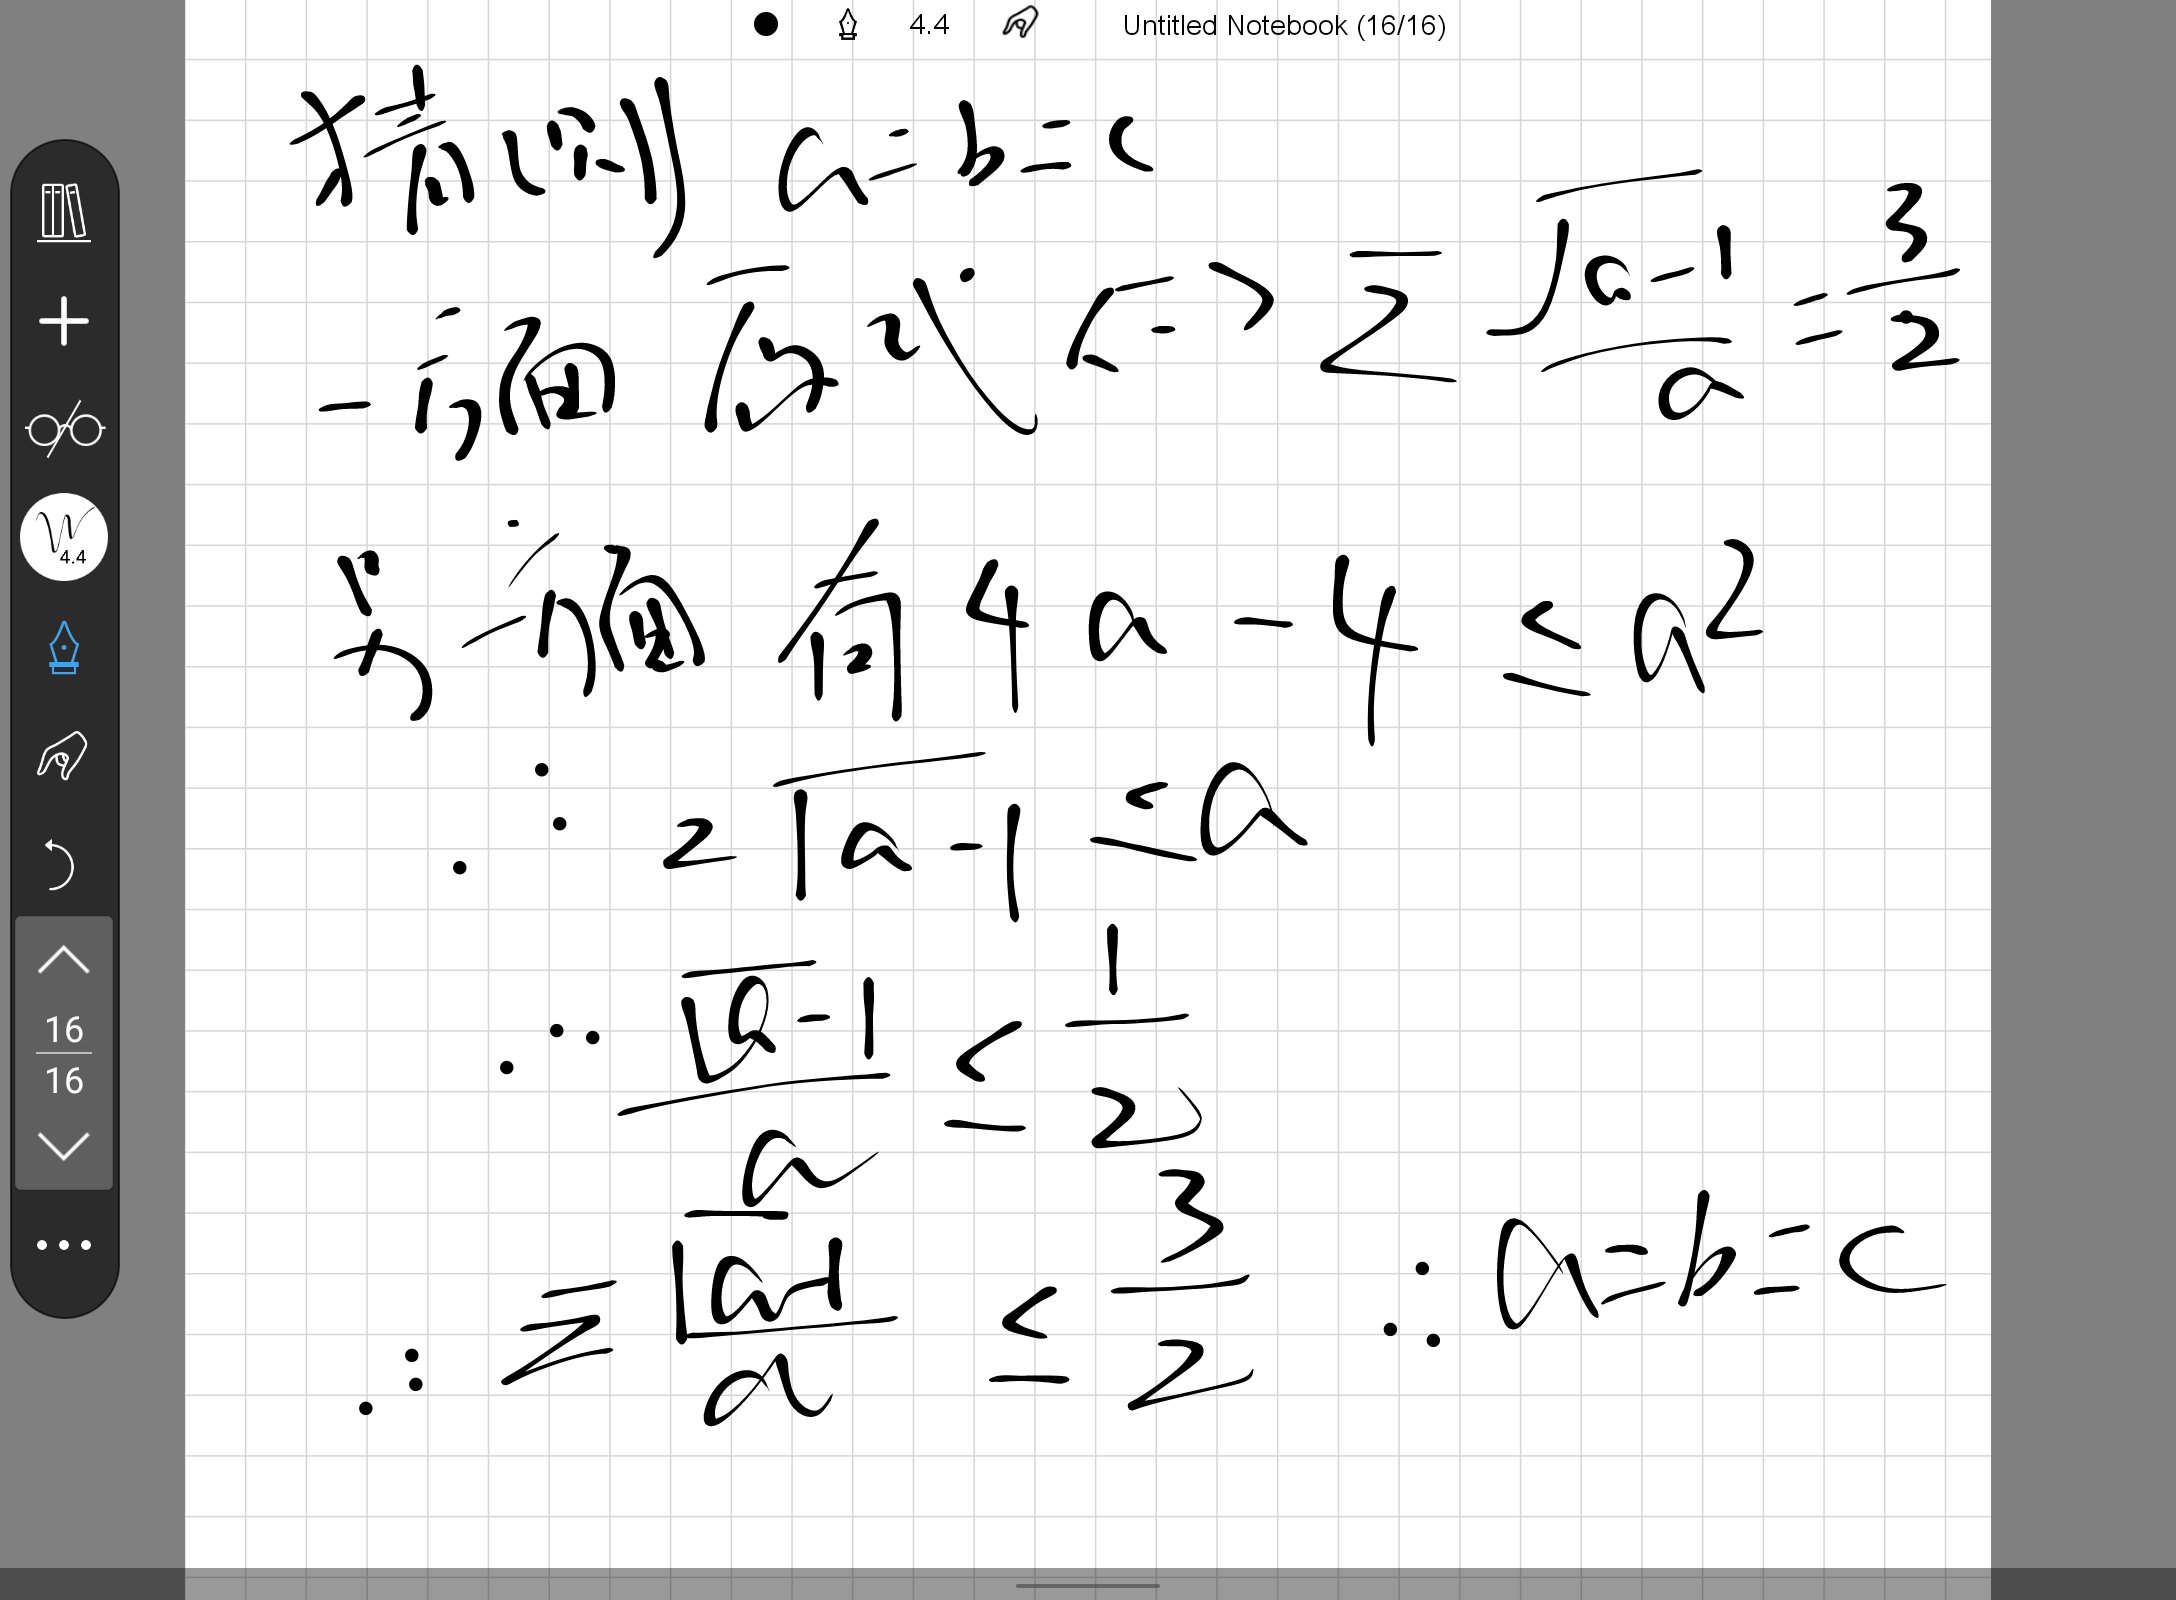 4.4 Untitled Notebook (16/16)
猜(测) a=b=c
一方面 原式 <=> Σ √(a-1)/a = 3/2
另一方面 有 4a-4 ≤ a²
∴ 2√(a-1) ≤ a
∴ √(a-1)/a ≤ 1/2
∴ Σ √(a-1)/a ≤ 3/2 ∴ a=b=c
4.4
16
16